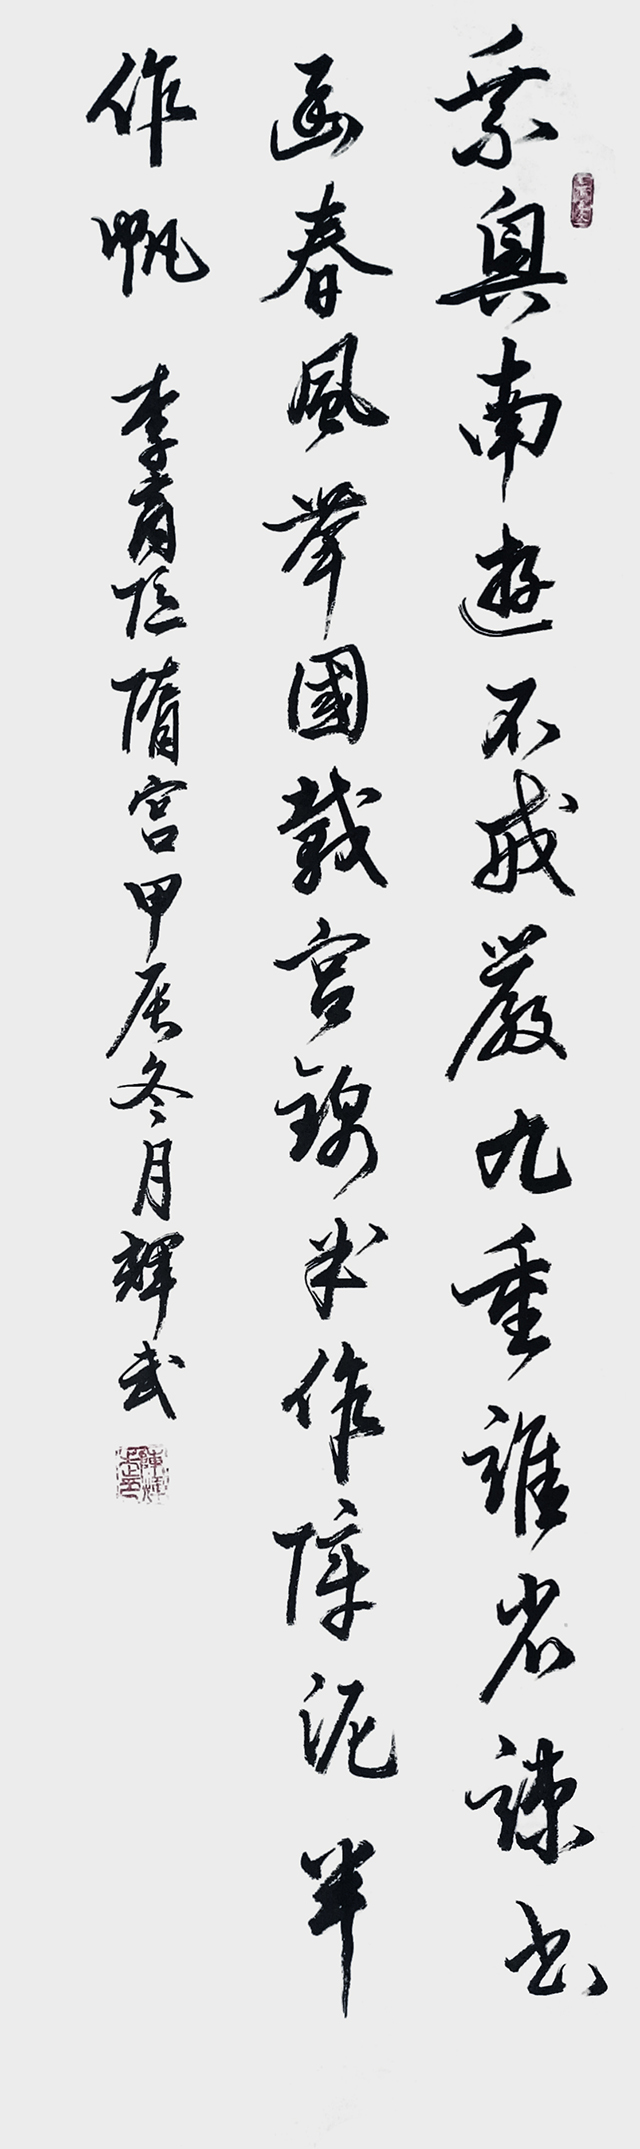 乘興南遊不戒嚴九重誰省諫书
函春風舉國裁宮錦半作障泥半
作帆 李商隐隋宫甲辰冬月輝武